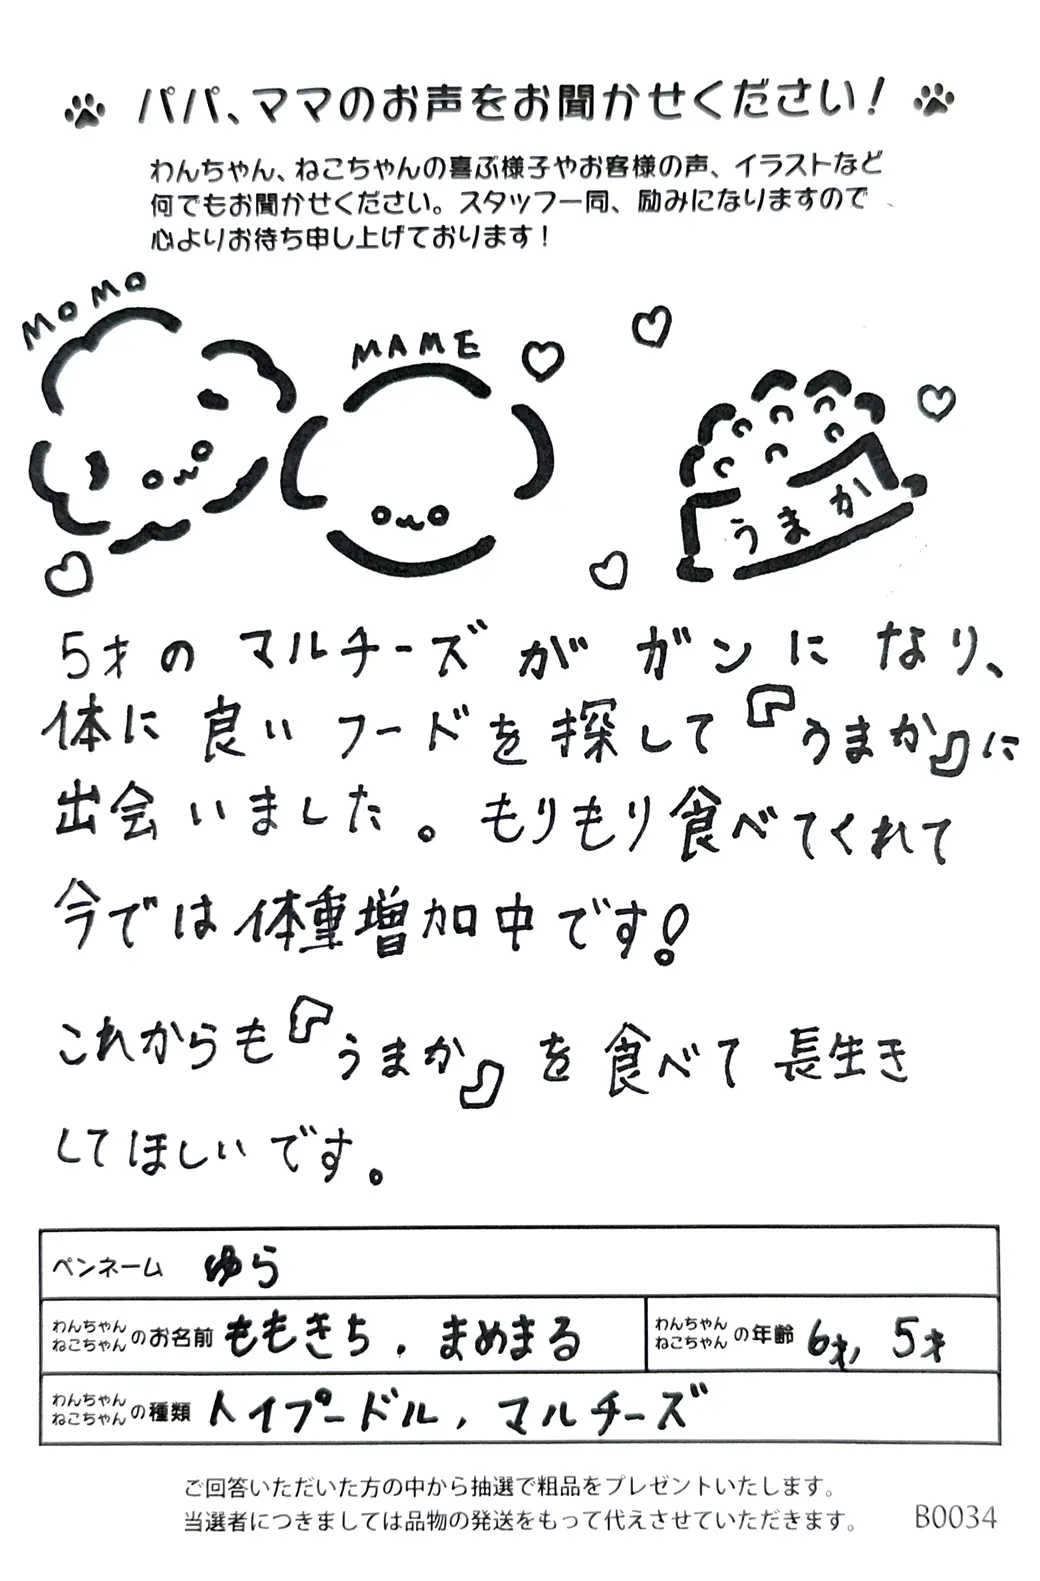 パパ、ママのお声をお聞かせください!
わんちゃん、ねこちゃんの喜ぶ様子やお客様の声、イラストなど
何でもお聞かせください。スタッフ一同、励みになりますので
心よりお待ち申し上げております!
MOMO
MAME
うまか
5才のマルチーズがガンになり、
体に良いフードを探して『うまか』に
出会いました。もりもり食べてくれて
今では体重増加中です!
これからも『うまか』を食べて長生き
してほしいです。
ペンネーム ゆら
わんちゃん ねこちゃん のお名前 ももきち, まめまる わんちゃん ねこちゃん の年齢 6才, 5才
わんちゃん ねこちゃん の種類 トイプードル, マルチーズ
ご回答いただいた方の中から抽選で粗品をプレゼントいたします。
当選者につきましては品物の発送をもって代えさせていただきます。 B0034